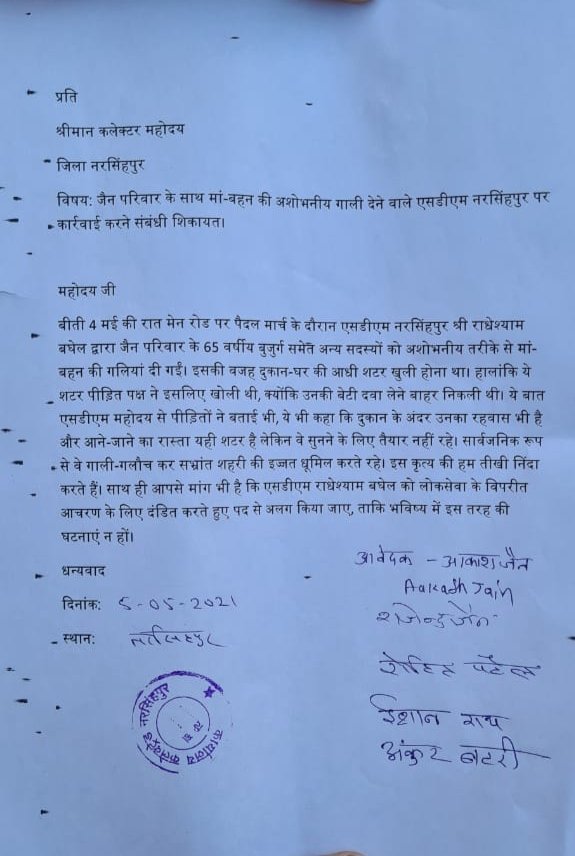 प्रति
श्रीमान कलेक्टर महोदय
जिला नरसिंहपुर
विषय: जैन परिवार के साथ मां-बहन की अशोभनीय गाली देने वाले एसडीएम नरसिंहपुर पर
कार्रवाई करने संबंधी शिकायत।
महोदय जी
बीती 4 मई की रात मेन रोड पर पैदल मार्च के दौरान एसडीएम नरसिंहपुर श्री राधेश्याम
बघेल द्वारा जैन परिवार के 65 वर्षीय बुजुर्ग समेत अन्य सदस्यों को अशोभनीय तरीके से मां-
बहन की गलियां दी गईं। इसकी वजह दुकान-घर की आधी शटर खुली होना था। हालांकि ये
शटर पीड़ित पक्ष ने इसलिए खोली थी, क्योंकि उनकी बेटी दवा लेने बाहर निकली थी। ये बात
एसडीएम महोदय से पीड़ितों ने बताई भी, ये भी कहा कि दुकान के अंदर उनका रहवास भी है
और आने-जाने का रास्ता यही शटर है लेकिन वे सुनने के लिए तैयार नहीं रहे। सार्वजनिक रूप
से वे गाली-गलौच कर सभ्रांत शहरी की इज्जत धूमिल करते रहे। इस कृत्य की हम तीखी निंदा
करते हैं। साथ ही आपसे मांग भी है कि एसडीएम राधेश्याम बघेल को लोकसेवा के विपरीत
आचरण के लिए दंडित करते हुए पद से अलग किया जाए, ताकि भविष्य में इस तरह की
घटनाएं न हों।
धन्यवाद
आवेदक - आकाश जैन
Aakash Jain
दिनांक: 5-05-2021
राजेन्द्र जैन
स्थान: नरसिंहपुर
रोहित पटेल
ईशान राय
अंकुर
कार्यालय कलेक्टर नरसिंहपुर